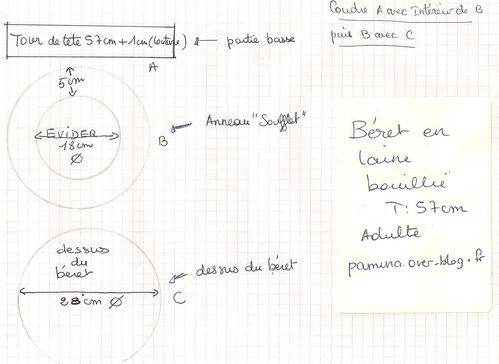 Coudre A avec Intérieur de B
puis B avec C
Tour de tete 57cm + 1cm (Couture)
partie basse
A
5cm
EVIDER
18cm
Ø
B
Anneau "Soufflet"
Béret en
laine
bouillie
T: 57cm
Adulte
pamina.over-blog.fr
dessus
du
béret
28cm Ø
C
dessus du béret